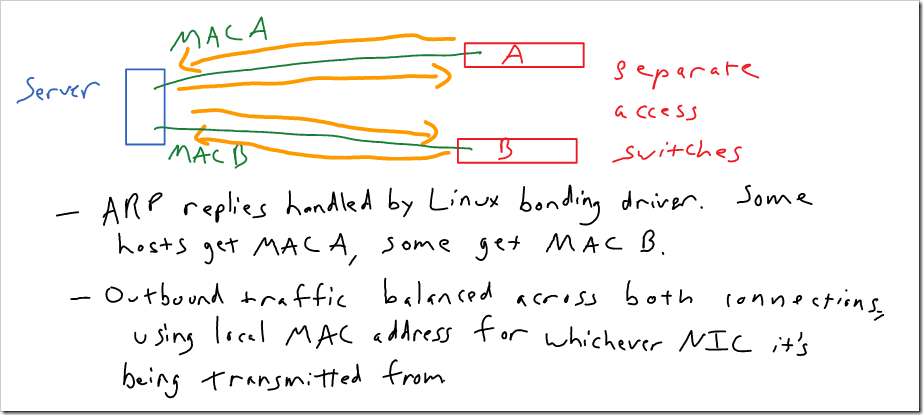 MAC A
A
Server
separate
access
switches
MAC B
B
- ARP replies handled by Linux bonding driver. Some
hosts get MAC A, some get MAC B.
- Outbound traffic balanced across both connections,
using local MAC address for whichever NIC it's
being transmitted from